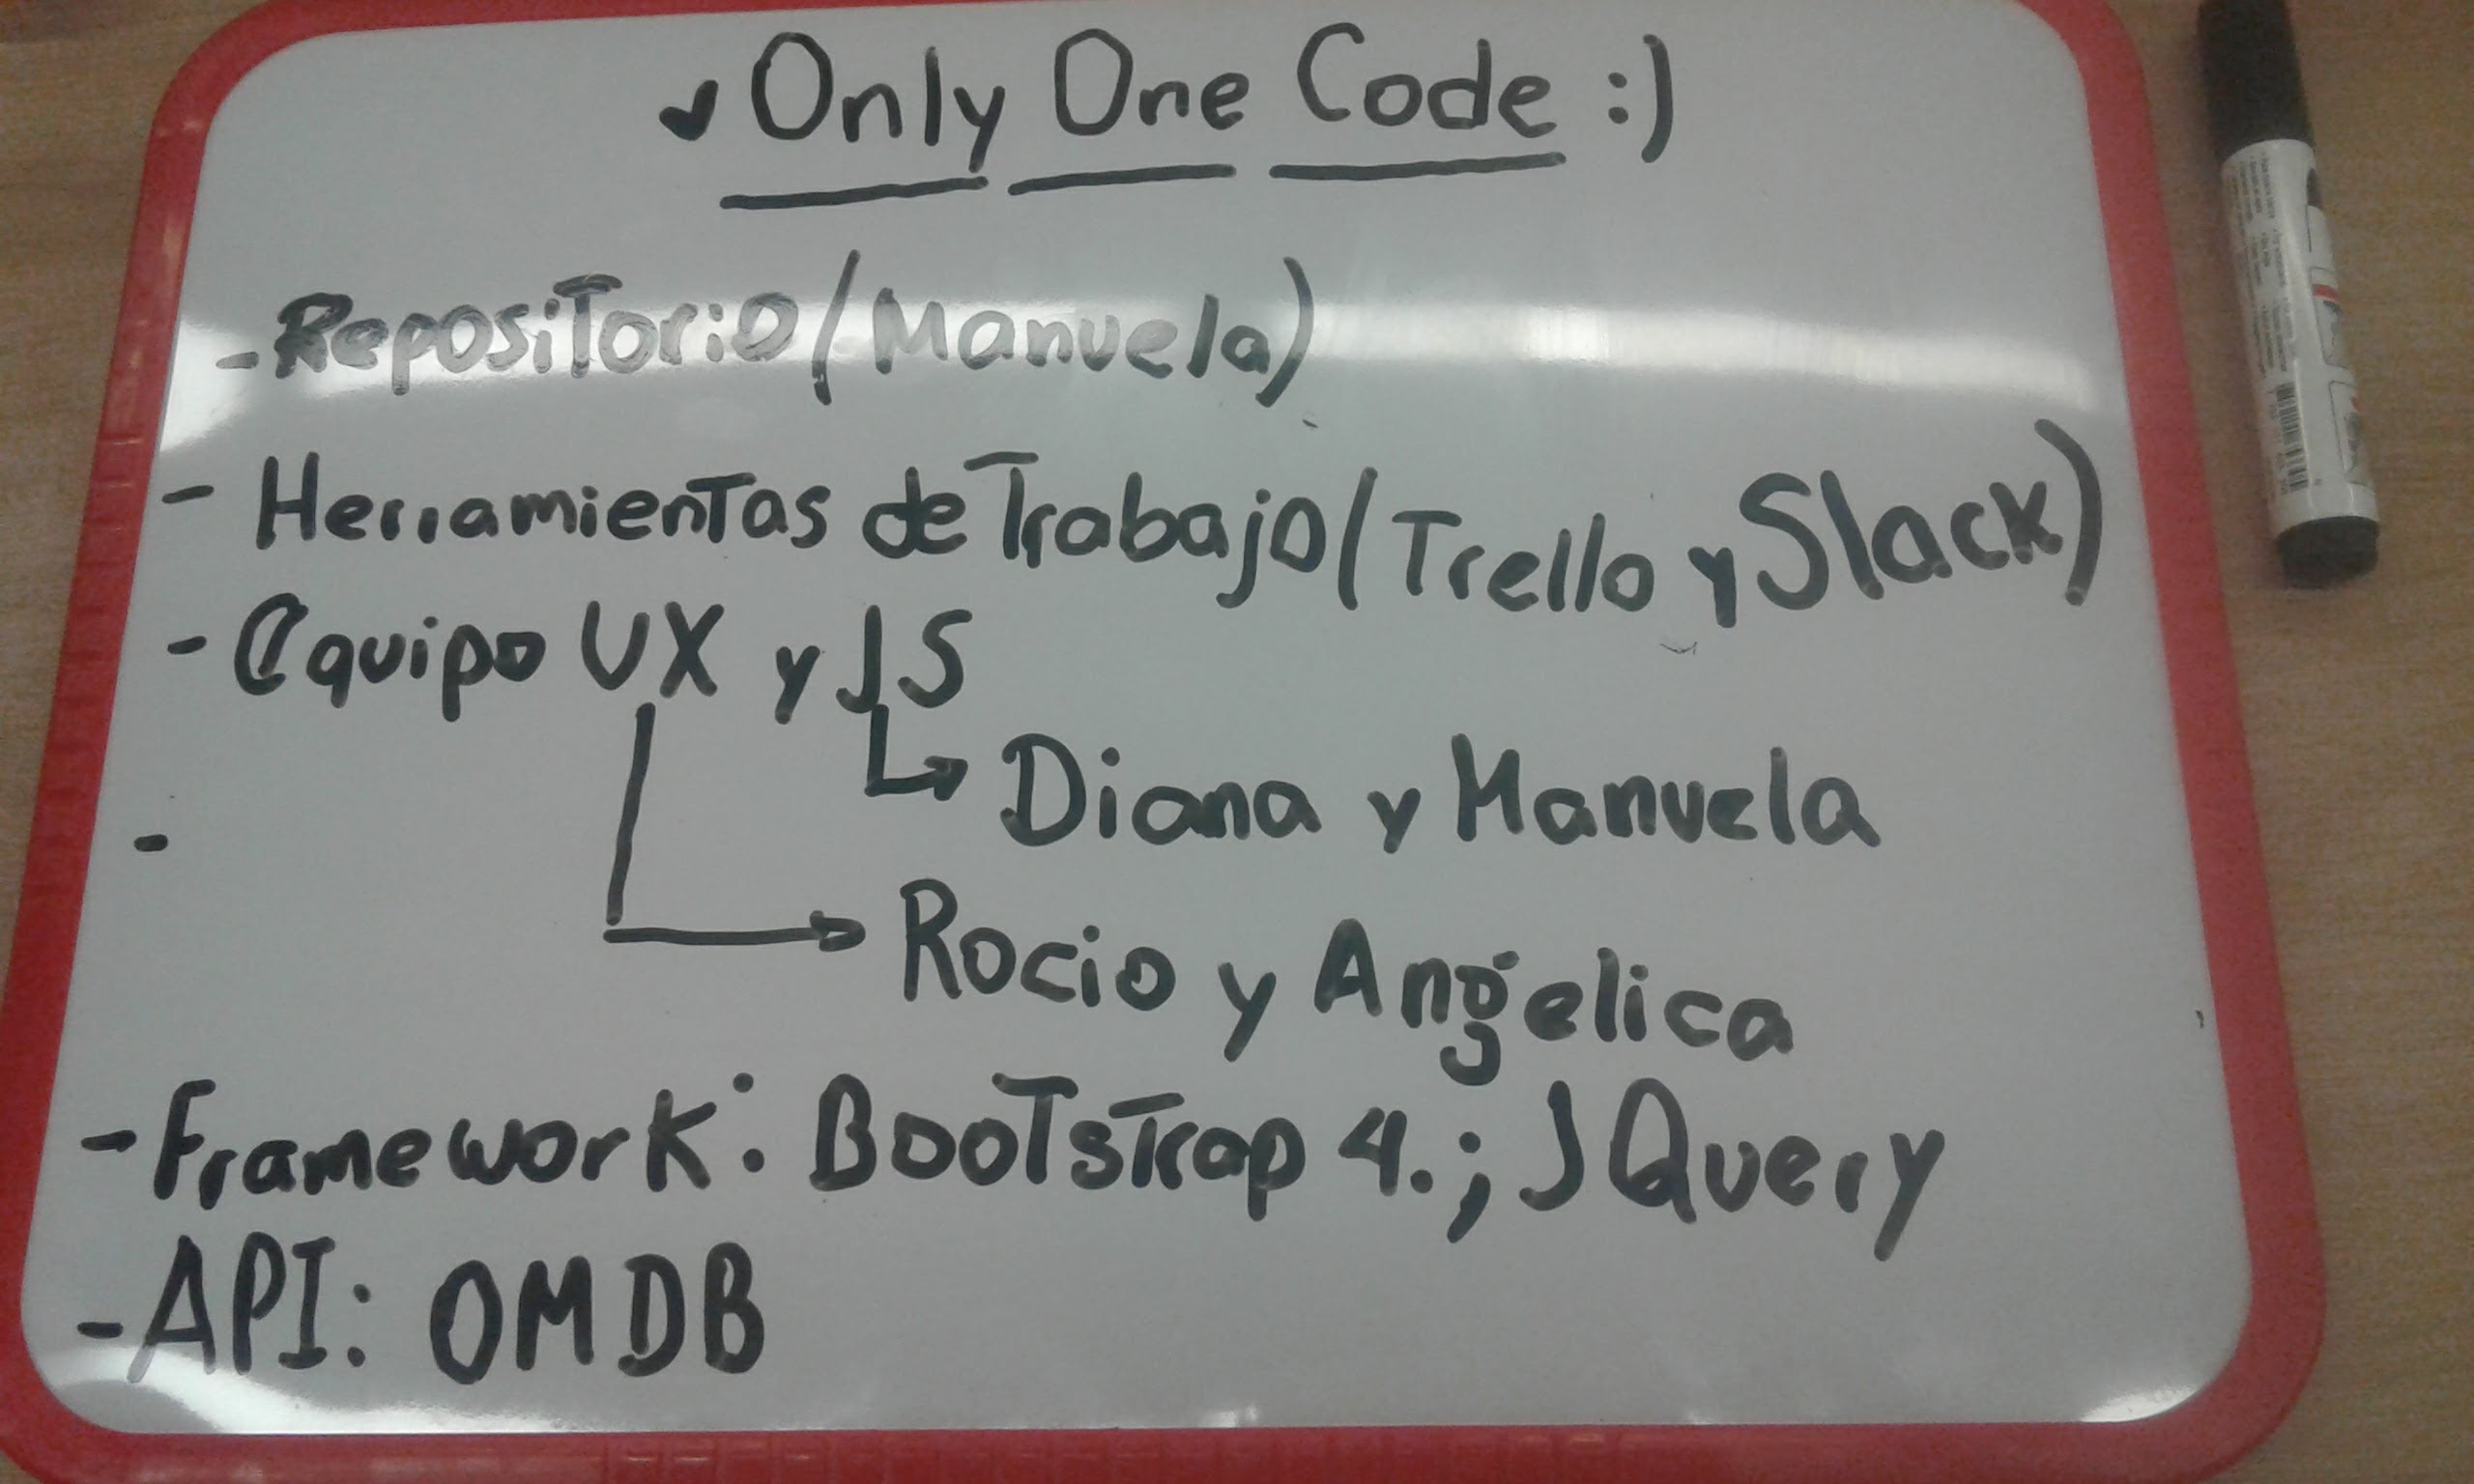 ✓ Only One Code :)
- Repositorio (Manuela)
- Herramientas de Trabajo (Trello y Slack)
- Equipo UX y JS
↳ Diana y Manuela
-
→ Rocio y Angélica
- Framework: Bootstrap 4.; JQuery
- API: OMDB